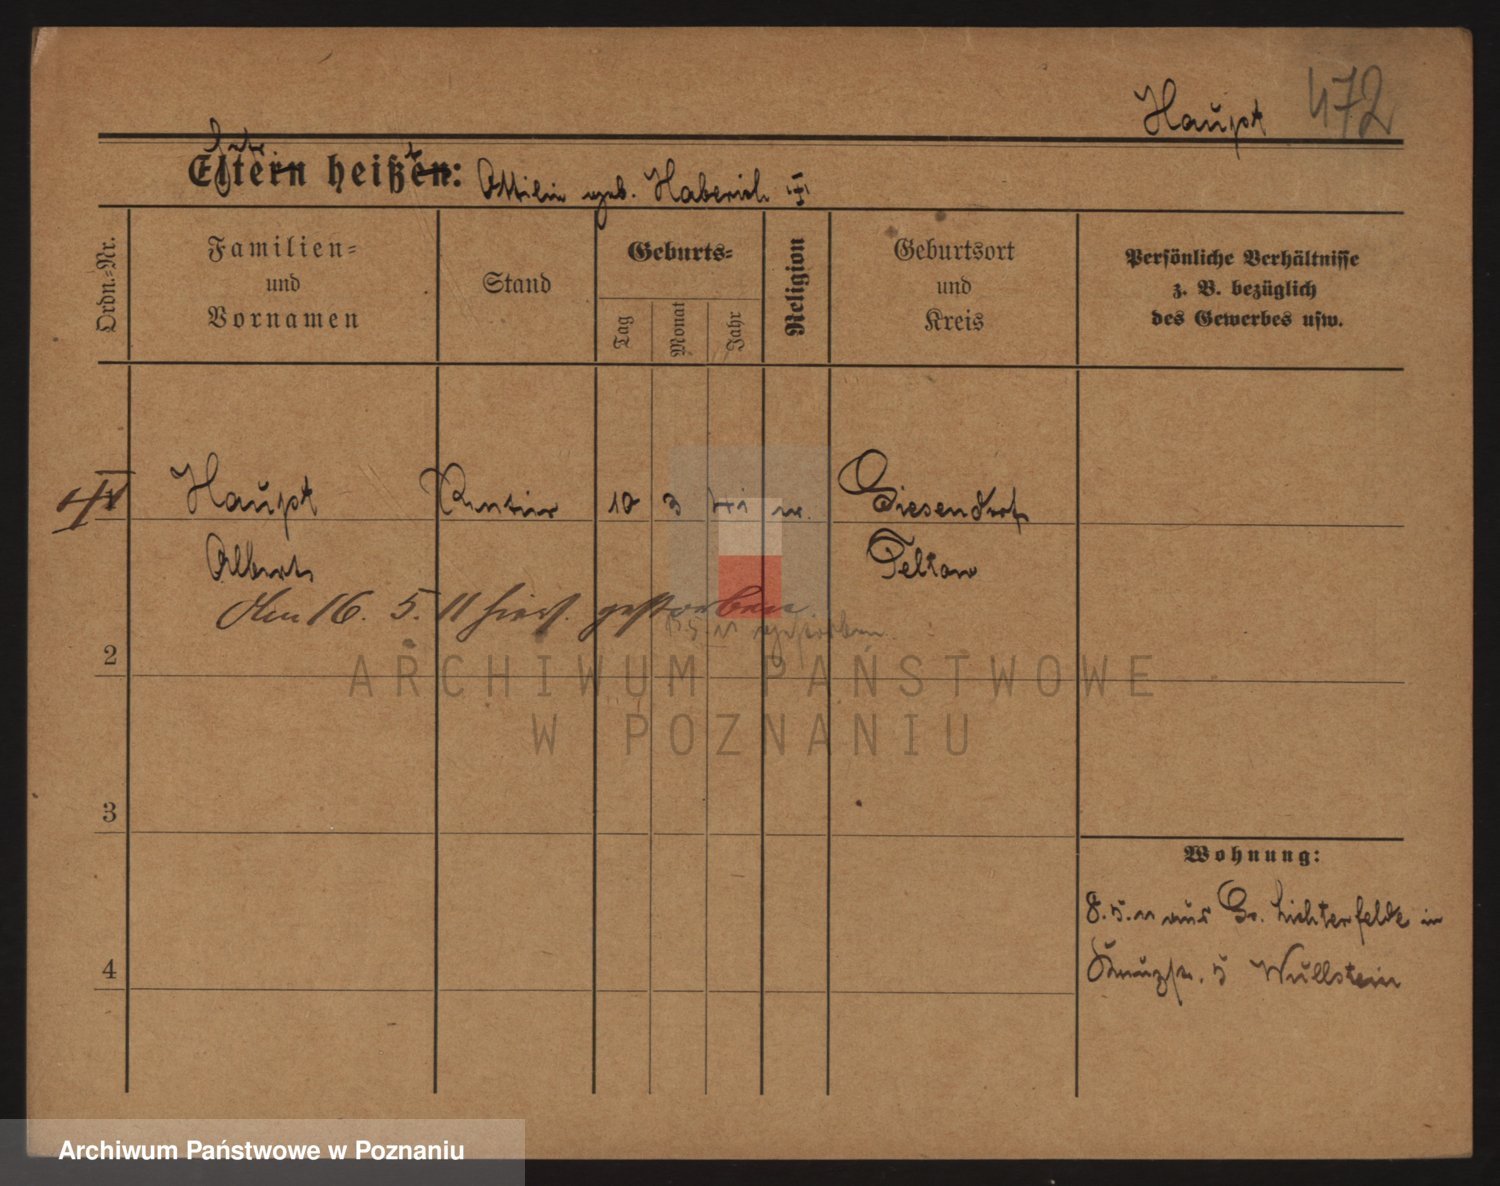 Haupt 472
Eltern heißen: Ottilie geb. Haberich
Ordn.-Nr.
Familien-
und
Vornamen
Stand
Geburts-
Tag
Monat
Jahr
Religion
Geburtsort
und
Kreis
Persönliche Verhältnisse
z. B. bezüglich
des Gewerbes usw.
Haupt Rentier 10 3 41 Giesendorf
Albert Teltow
Am 16. 5. 11 hier gestorben.
gestorben.
2
ARCHIWUM PAŃSTWOWE
W POZNANIU
3
4
Wohnung:
8.5.11 aus Gr. Lichterfelde in
Kreuzstr. 5 Wullstein
Archiwum Państwowe w Poznaniu